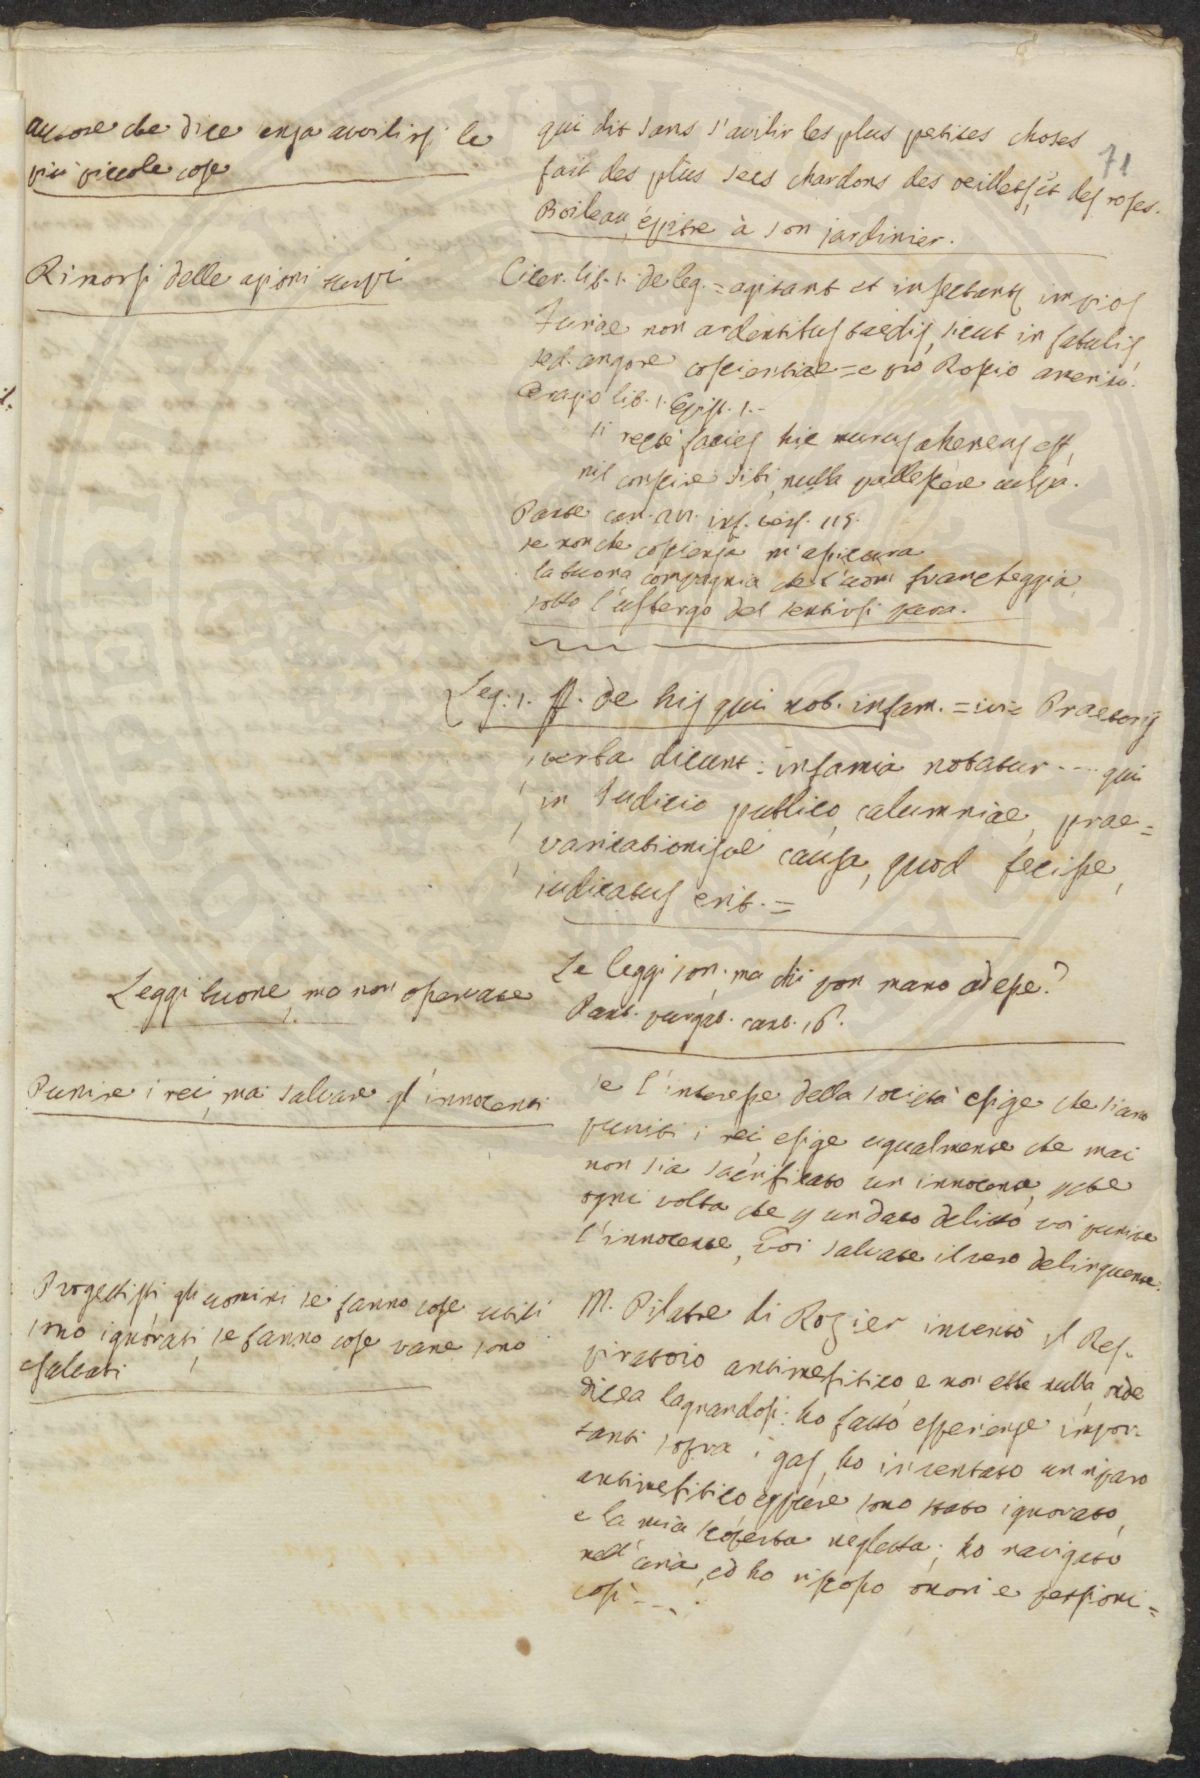 autore che dice enza avvilirsi le
più piccole cose
qui dit sans s'avilir les plus petites choses
71
fait des plus secs chardons des oeillets, et des roses.
Boileau, épitre à son jardinier.
Rimorsi delle azioni turpi
Cicer. lib. 1. de leg. = agitant et insectant impios
Furiae non ardentibus taedis, sicut in fabulis
sed angore coscientiae = e pro Roscio amerin:
Orazio lib. 1. Epist. 1.-
si recte facies hic murus aheneus est,
nil conscire sibi, nulla pallescere culpa.
Dante can. inf. vers. 115.
se non che coscienza m'assicura
la buona compagnia che l'uom francheggia
sotto l'usbergo del sentirsi pura.
Leg. 1. ff. de his qui not. infam. = ivi = Praetoris
verba dicunt: infamia notatur --- qui
in Judicio publico, calumniae, prae=
varicationisve causa, quod fecisse,
iudicatus erit. =
Leggi buone, ma non osservate
Le leggi son, ma chi pon mano ad esse?
Dant. purgat. cant. 16.
Punire i rei, ma salvare gl'innocenti
se l'interesse della società esige che siano
puniti i rei, esige ugualmente che mai
non sia sacrificato un innocente, che
ogni volta che p un dato delitto voi punite
l'innocente, voi salvate il vero delinquente.
Progettisti gli uomini se fanno cose utili
sono ignorati, se fanno cose vane sono
esaltati
M. Pilatre di Rozier inventò il Res-
piratoio antimefitico e non ebbe nulla, onde
dicea lagnandosi: ho fatto esperienze impor:
tanti sopra i gas, ho inventato un riparo
antimefitico, eppure sono stato ignorato,
e la mia scoperta neglecta; ho navigato
nell'aria, ed ho riscosso onori e pensioni =
così ---